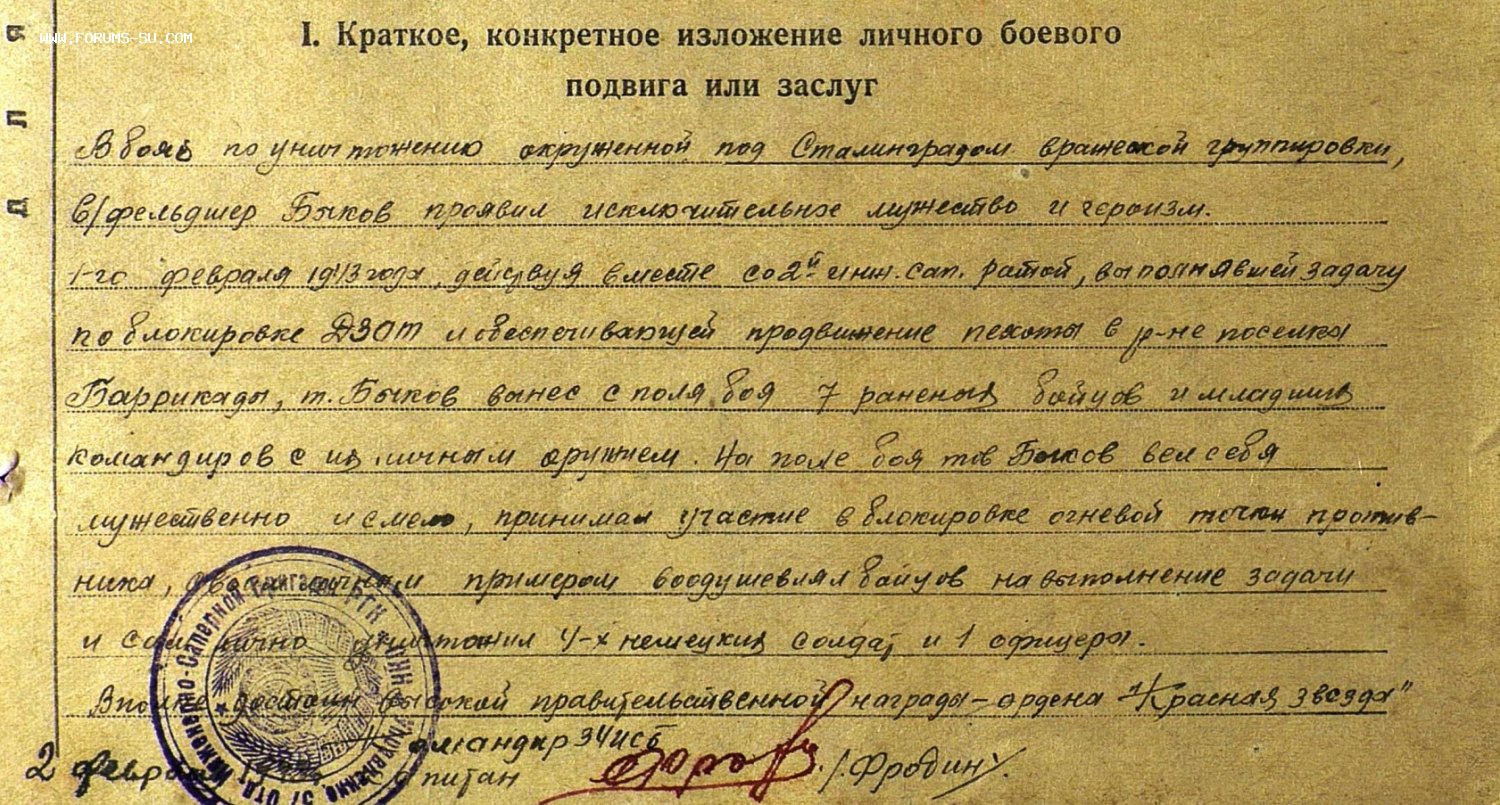 www.forums-su.com
для
I. Краткое, конкретное изложение личного боевого
подвига или заслуг
В боях по уничтожению окруженной под Сталинградом вражеской группировки,
в/фельдшер Быков проявил исключительное мужество и героизм.
1-го февраля 1943 года, действуя вместе со 2й инж. сап. ротой, выполнявшей задачу
по блокировке ДЗОТ и обеспечивающей продвижение пехоты в р-не поселка
Баррикады, т. Быков вынес с поля боя 7 раненых бойцов и младших
командиров с их личным оружием. На поле боя тов Быков вел себя
мужественно и смело, принимал участие в блокировке огневой точки против-
ника, личным примером воодушевлял бойцов на выполнение задачи
и сам лично уничтожил 4-х немецких солдат и 1 офицера.
Вполне достоин высокой правительственной награды - ордена "Красная звезда"
Командир
2 февраля капитан /Фродин/.
57 отд. Инженерно-Саперной Бригады РГК